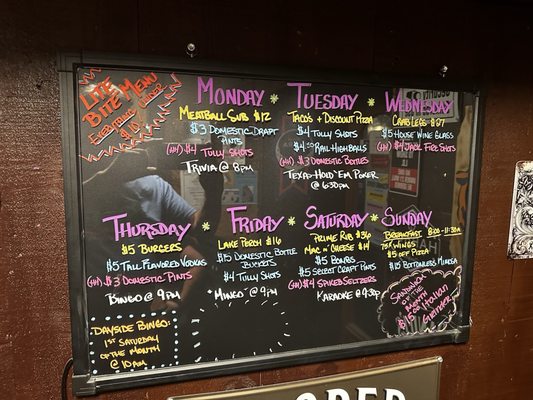 Lite
Bite Menu
Everything Under
$10
Monday
Meatball Sub $12
$3 Domestic Draft
Pints
(HH) $4 Tully Shots
Trivia @ 8pm
Tuesday
Tacos + Discount Pizza
$4 Tully Shots
$4.50 Rail-Highballs
(HH) $3 Domestic Bottles
Texas-Hold'em Poker
@ 630pm
Wednesday
Crab Legs $27
$5 House Wine Glass
(HH) $4 Jack Fire Shots
Thursday
$5 Burgers
$5 Tall Flavored Vodkas
(HH) $3 Domestic Pints
Bingo @ 9pm
Friday
Lake Perch $16
$15 Domestic Bottle
Buckets
$4 Tully Shots
Mingo @ 9pm
Saturday
Prime Rib $36
Mac n' Cheese $14
$5 Bombs
$5 Select Craft Pints
(HH) $4 Spiked Seltzers
Karaoke @ 930pm
Sunday
Breakfast 8:00-11:30am
75¢ Wings
$5 off Pizza
$15 Bottomless Mimosa
Dayside Bingo:
1st Saturday
of the Month
@ 10am
Sandwich
of the
Month
$15 Italian
Grinder